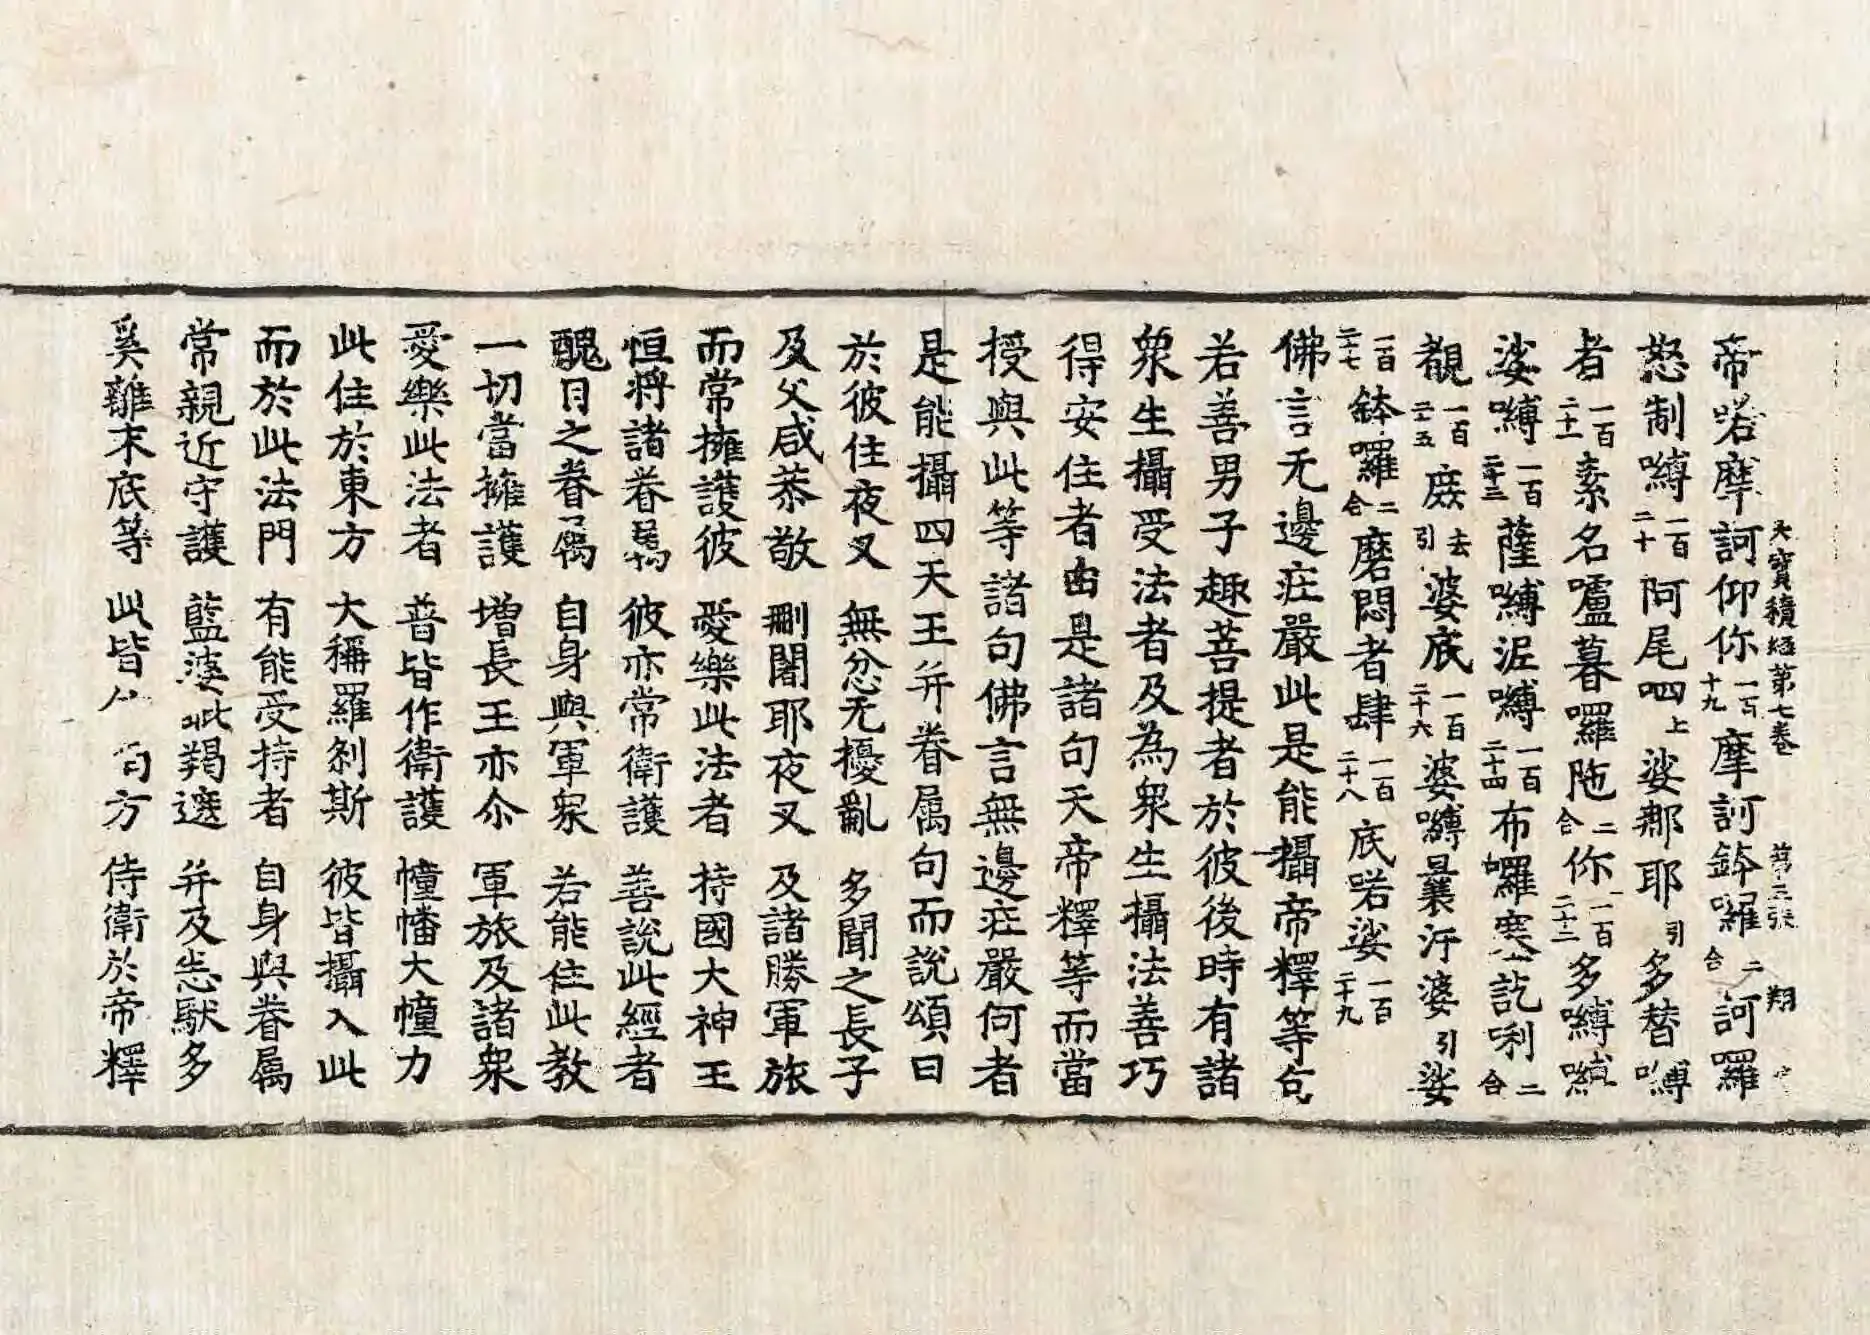 大寶積經第七卷 第三張 翔
帝喏摩訶仰你一百十九摩訶鉢囉二合訶羅
怒制嚩一百二十阿尾呬上娑鄰耶引多替嚩
者一百二十一素名嚧暮囉陁二合你一百二十二多嚩
娑嚩一百二十三薩嚩泥嚩一百二十四布囉寒訖唎二合
覩一百二十五廄去引婆底一百二十六婆嚩曩汙婆引娑
一百二十七鉢囉二合磨悶者肆一百二十八底喏娑一百二十九
佛言无邊庄嚴此是能攝帝釋等句
若善男子趣菩提者於彼後時有諸
衆生攝受法者及為衆生攝法善巧
得安住者由是諸句天帝釋等而當
授與此等諸句佛言無邊庄嚴何者
是能攝四天王并眷属句而說頌曰
於彼住夜叉 無忿无擾亂 多聞之長子
及父咸恭敬 刪闍耶夜叉 及諸勝軍旅
而常擁護彼 愛樂此法者 持國大神王
恒將諸眷属 彼亦常衛護 善說此經者
醜目之眷属 自身與軍衆 若能住此教
一切當擁護 增長王亦尒 軍旅及諸衆
愛樂此法者 普皆作衛護 幢幡大幢力
此住於東方 大稱羅剎斯 彼皆攝入此
而於此法門 有能受持者 自身與眷属
常親近守護 藍婆毗羯邏 并及悉馱多
奚離末底等 此皆 方 侍衛於帝釋